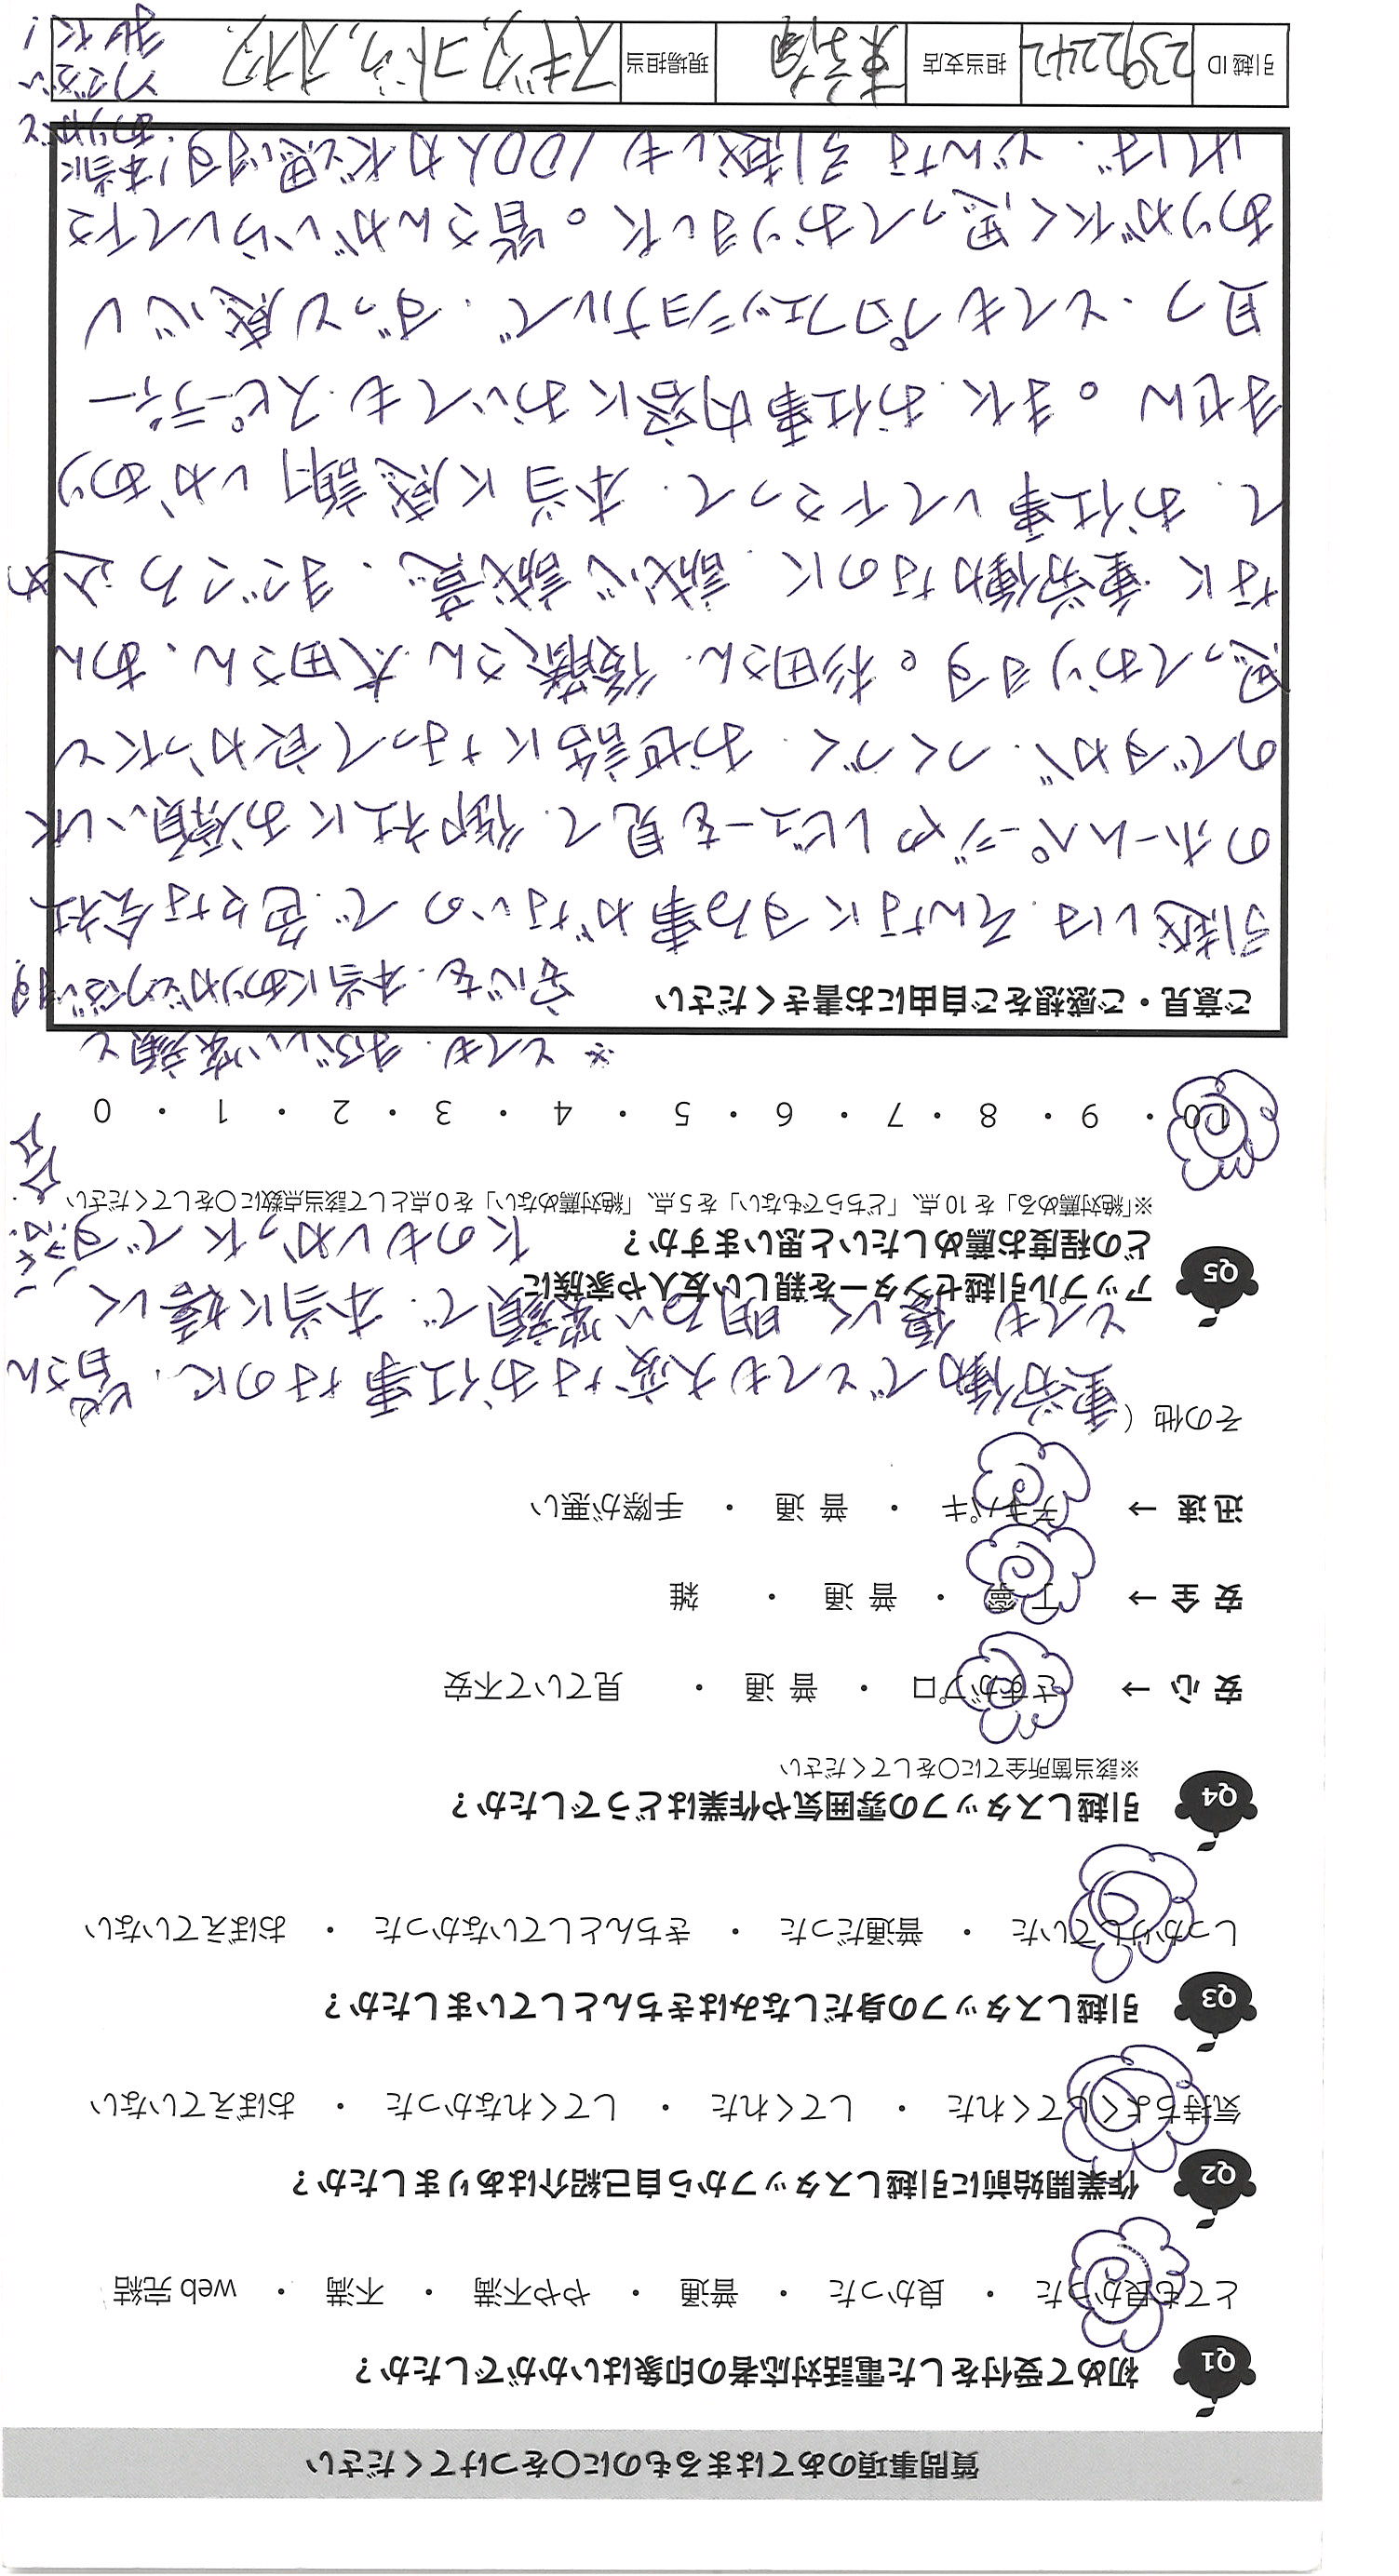 質問事項のあてはまるものに〇をつけてください
Q1 初めて受付をした電話対応者の印象はいかがでしたか？
とても良かった ・ 良かった ・ 普通 ・ やや不満 ・ 不満 ・ web完結
Q2 作業開始前に引越しスタッフから自己紹介はありましたか？
気持ちよくしてくれた ・ してくれた ・ してくれなかった ・ おぼえていない
Q3 引越しスタッフの身だしなみはきちんとしていましたか？
しっかりしていた ・ 普通だった ・ きちんとしていなかった ・ おぼえていない
Q4 引越しスタッフの雰囲気や作業はどうでしたか？
※該当箇所全てに〇をしてください
安心 → さすがプロ ・ 普通 ・ 見ていて不安
安全 → 丁寧 ・ 普通 ・ 雑
迅速 → テキパキ ・ 普通 ・ 手際が悪い
その他（重労働でとても大変なお仕事なのに、皆さん
とても優しく明るい笑顔で、本当に嬉しく
たのもしかったです
Q5 アップル引越センターを親しい友人や家族に
どの程度お薦めしたいと思いますか？
※「絶対薦める」を10点、「どちらでもない」を5点、「絶対薦めない」を0点として該当点数に〇をしてください
10 ・ 9 ・ 8 ・ 7 ・ 6 ・ 5 ・ 4 ・ 3 ・ 2 ・ 1 ・ 0
※とても、まぶしい笑顔と
安心を、本当にありがとうございます
ご意見・ご感想をご自由にお書きください
引越しは、そんなにする事がないので、色々な会社
のホームページやレビューを見て、御社にお願いした
のですが、つくづく、お世話になって良かったと
思っております。杉田さん、後藤さん、太田さん、あん
なに重労働なのに、誠心誠意、まごころ込め
て、お仕事して下さって、本当に感謝しかあり
ません。また、お仕事内容においても、スピーディー
且つ、とてもプロフェッショナルで、ずっと感心し
ありがたく思っておりました。皆さんがいらして下さ
れば、どんな引越しも100人力だと思います！本当に
ありがとう
ございました！
引越ID 2392242 担当支店 東京南 現場担当 スギタ、ゴトウ、オオタ